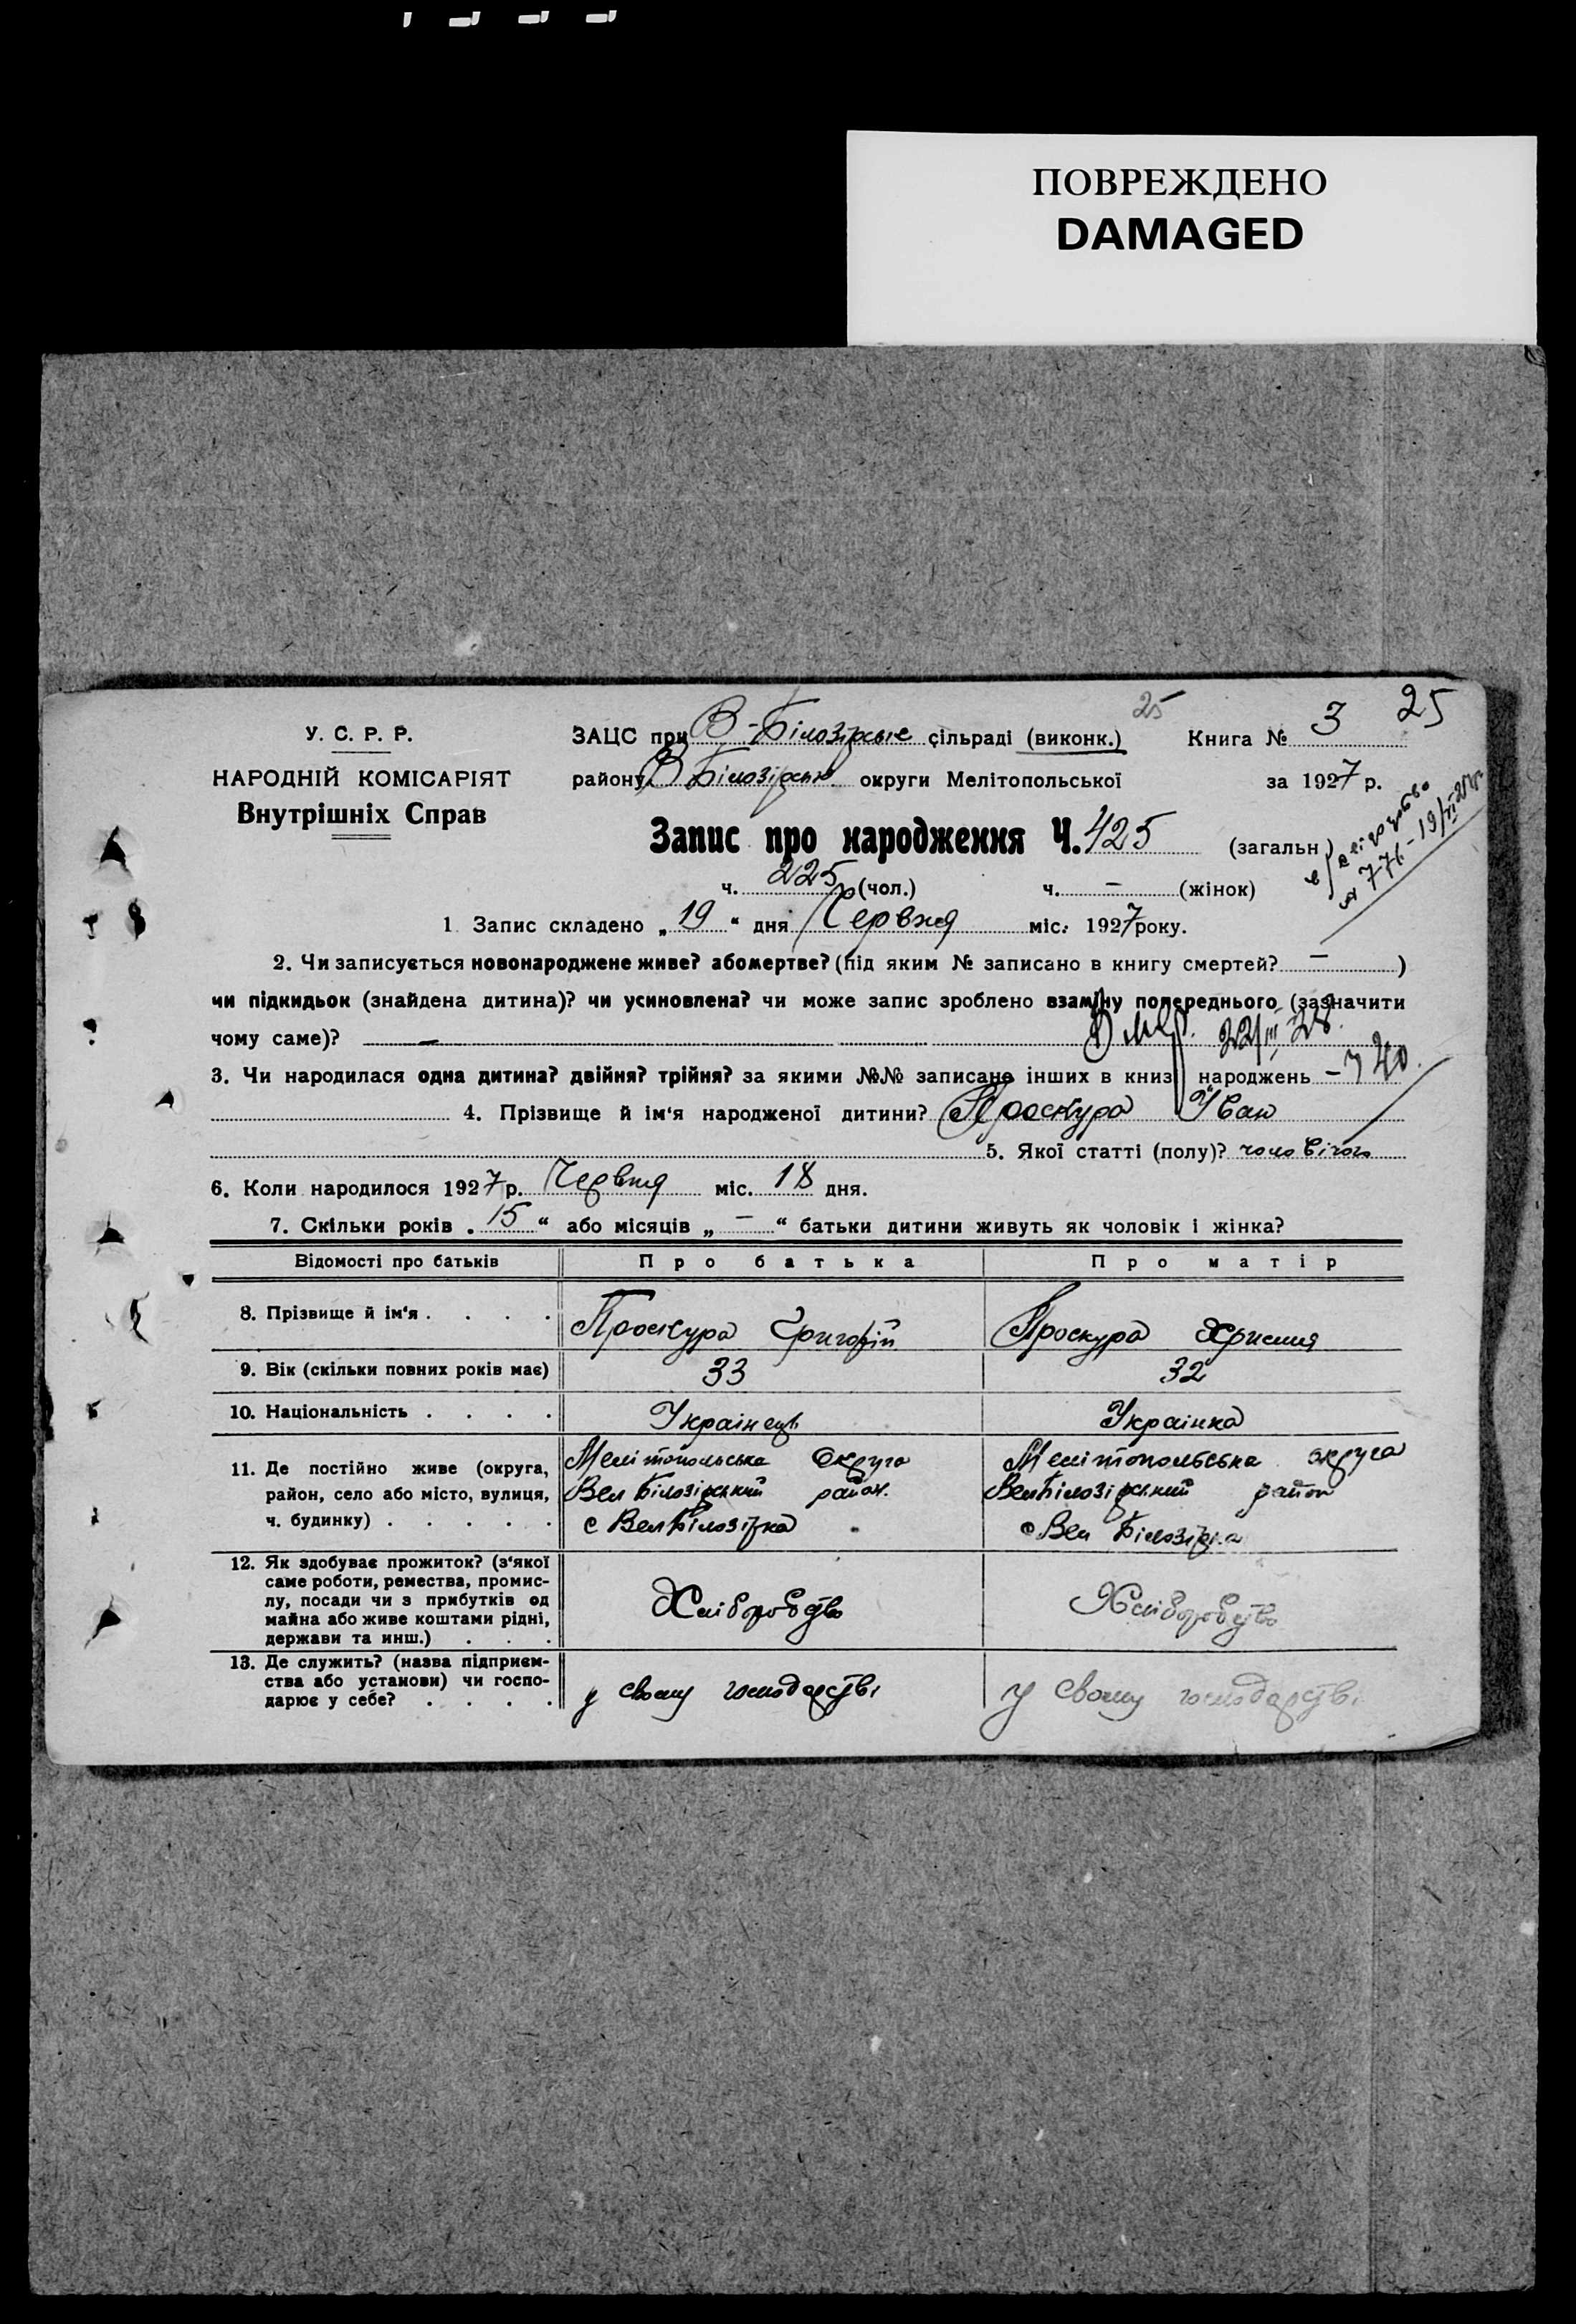 ПОВРЕЖДЕНО
DAMAGED
25
25
У. С. Р. Р.
НАРОДНІЙ КОМІСАРІЯТ
Внутрішніх Справ
ЗАЦС при В-Білозірське сільраді (виконк.) Книга № 3
району В Білозірське округи Мелітопольської за 1927 р.
Запис про народження Ч. 425 (загальн.)
ч. 225 (чол.) ч. – (жінок)
№ 776 - 19/
1 Запис складено „19“ дня Червня міс. 1927 року.
2. Чи записується новонароджене живе? або мертве? (під яким № записано в книгу смертей? – )
чи підкидьок (знайдена дитина)? чи усиновлена? чи може запис зроблено взаміну попереднього (зазначити
чому саме)? –
Умер. 22/III 28. - 40
3. Чи народилася одна дитина? двійня? трійня? за якими №№ записано інших в книзі народжень –
4. Прізвище й ім'я народженої дитини? Проскура Іван
5. Якої статті (полу)? чоловічого
6. Коли народилося 1927 р. Червня міс. 18 дня.
7. Скільки років „15“ або місяців „–“ батьки дитини живуть як чоловік і жінка?
Відомості про батьків Про батька Про матір
8. Прізвище й ім'я . . . . Проскура Григорій Проскура Христия
9. Вік (скільки повних років має) 33 32
10. Національність . . . . Українець Українка
11. Де постійно живе (округа, Мелітопольська округа Мелітопольська округа
район, село або місто, вулиця, Вел Білозірський район. Вел Білозірський район
ч. будинку) . . . . . с Вел Білозірка с Вел Білозірка
12. Як здобуває прожиток? (з'якої
саме роботи, ремества, промис-
лу, посади чи з прибутків од Хліборобство Хліборобство
майна або живе коштами рідні,
держави та инш.) . . .
13. Де служить? (назва підприєм-
ства або установи) чи госпо- у своєму господарстві у своєму господарстві
дарює у себе? . . . .